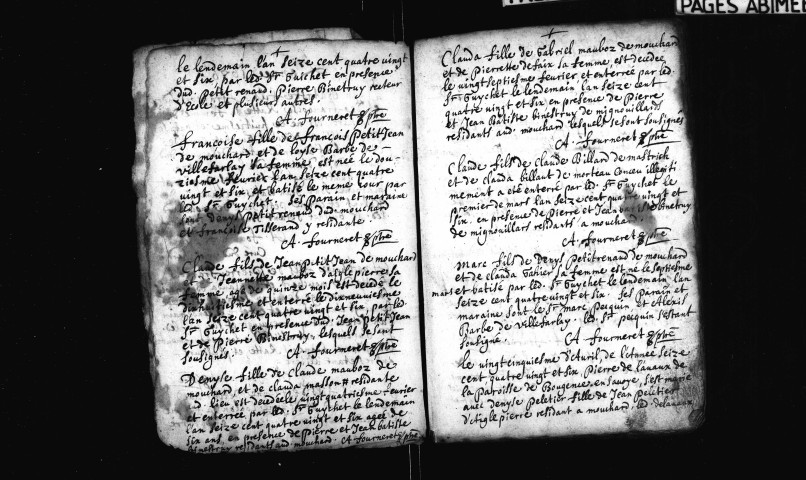 PAGES ABIMEE
le lendemain l'an seize cent quatre vingt
et six par led. Sr Guichet en presence
dud. petit renaud, Pierre Binetruy recteur
d'Ecole et plusieurs autres.
A. Fourneret ptre
Francoise fille de François Petit Jean
de mouchard et de loyse Barbe de
villefarlay sa femme, est née le dou-
ziesme feuvrier l'an seize cent quatre
vingt et six, et batisé le meme jour par
led. Sr Guychet. Ses parain et maraine
sont Denys Petit renaud dud. mouchard
et Francoise Tisserand y residante.
A. Fourneret ptre
Claude fils de Jean Petit Jean de mouchard
et de Jeannette mauboz d'aiglepierre sa
femme agé de quinze mois est decedé le
et enterré le dixneuviesme
l'an seize cent quatre vingt et six par led.
Sr Guychet en presence dud. Jean Petit Jean
et de Pierre Binestruy, lesquels se sont
soussignés. A. Fourneret ptre
Denyse fille de Claude mauboz de
mouchard, et de clauda masson residante
aud. lieu est decedée le vingt quatriesme feuvrier
et enterrée par led. Sr Guychet le lendemain
l'an seize cent quatre vingt et six agée de
six ans, en presence de Pierre et Jean batiste
binetruy residants aud. mouchard. A. Fourneret ptre
Clauda fille de Gabriel mauboz de mouchard
et de Pierrette defaix sa femme, est decedée
le vingtseptiesme feuvrier et enterrée par led.
Sr Guychet le lendemain l'an seize cent
quatre vingt et six en presence de Pierre
et Jean Batiste binestruy de mignouillards
residants aud. mouchard lesquels se sont sousignés
A. Fourneret ptre
Claude fils de Claude Billard de
et de clauda billaut de morteau conceu illegiti
mement a été enterré par led. Sr Guychet le
premier de mars l'an seize cent quatre vingt et
six. en presence de Pierre et Jean batiste binetruy
de mignouillars residants a mouchard.
A. Fourneret ptre
Marc fils de Denys Petit renaud de mouchard
et de clauda Vahier sa femme est né le septiesme
mars et batisé par led. Sr Guychet le lendemain l'an
seize cent quatre vingt et six. Ses Parain et
maraine sont le Sr Marc pecquin et Alexis
Barbe de villefarlay. led. Sr pecquin s'estant
sousigné. A. Fourneret ptre
Le vingtcinquiesme d'Avril de l'année seize
cent quatre vingt et six. Pierre de lauaux de
la paroisse de Bougence en savoye, s'est marié
avec denyse Peletier fille de Jean Peletier
d'aiglepierre residant a mouchard, led. delauaux